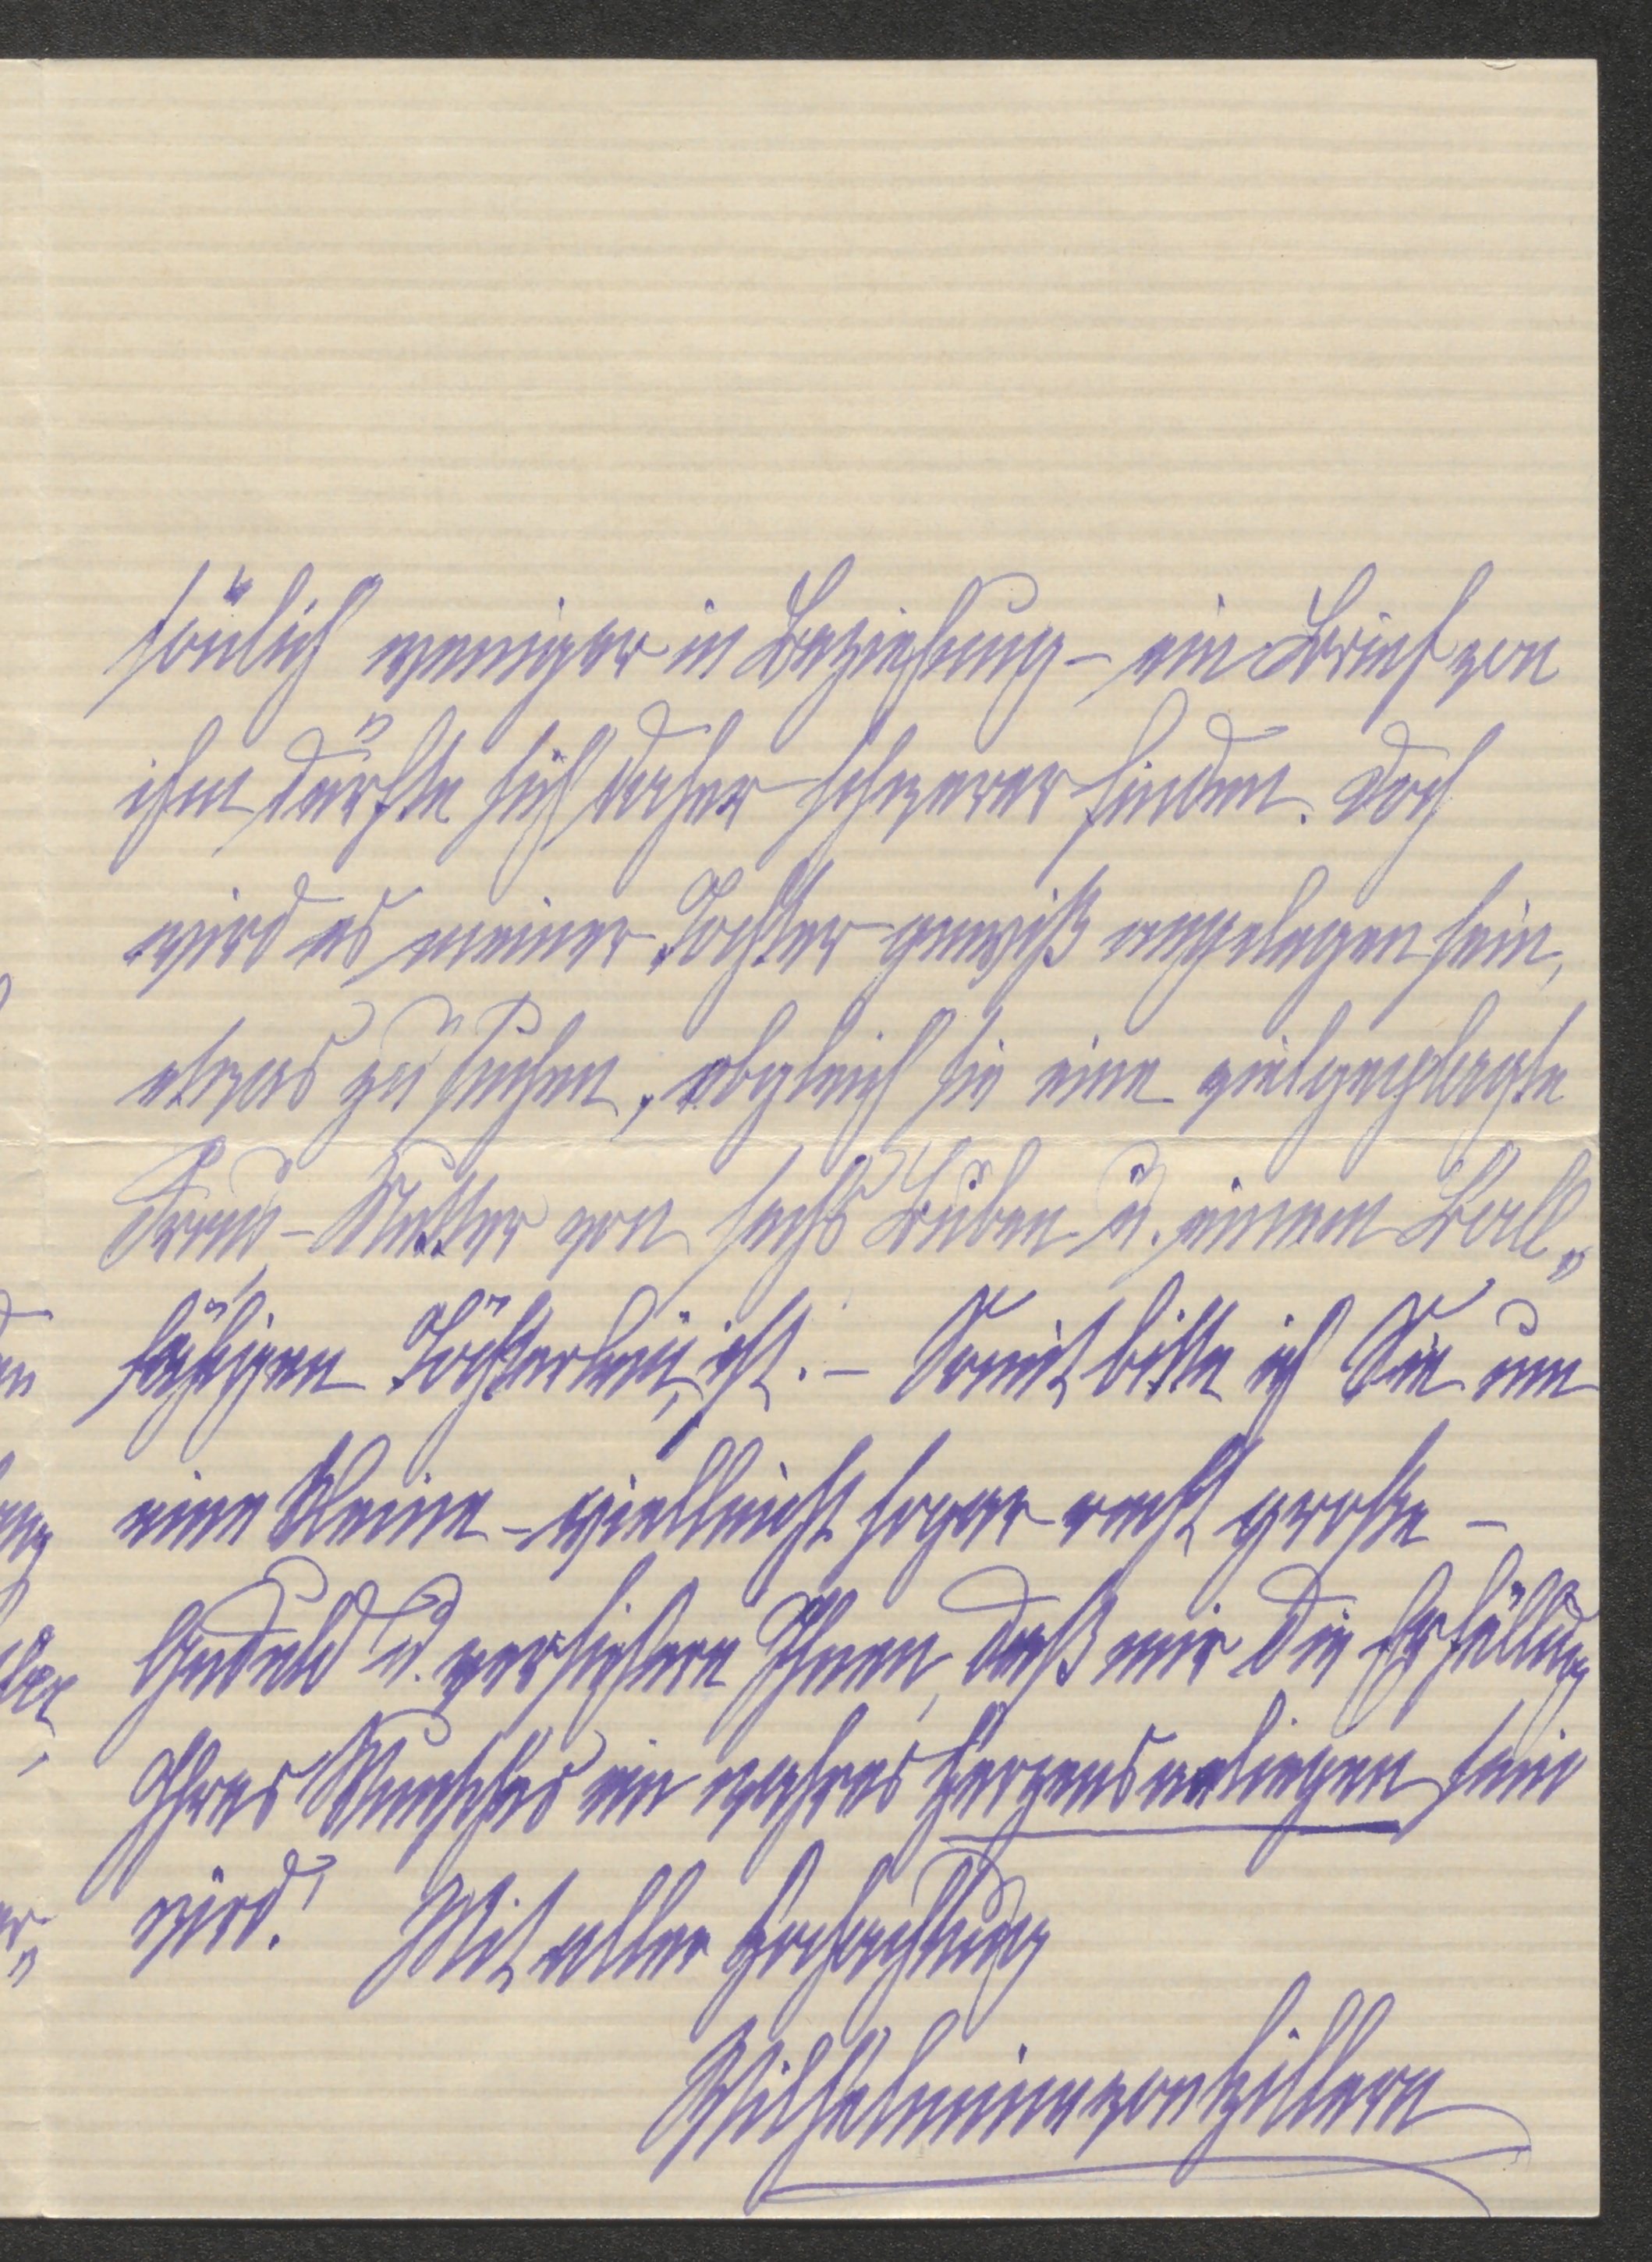 sönlich weniger in Beziehung – ein Brief von
ihm dürfte sich daher schwerer finden. Doch
wird es meiner Tochter gewiß angelegen sein,
etwas zu suchen, obgleich sie eine vielgeplagte
Frau – Mutter von sechs Buben u. einem Ball„
fähigen Töchterlein, ist. – Somit bitte ich Sie um
eine kleine – vielleicht sogar recht große –
Geduld u. versichere Ihnen, daß mir die Erfüllung
Ihres Wunsches ein wahres Herzensanliegen sein
wird! Mit aller Hochachtung
Wilhelmine von Hillern